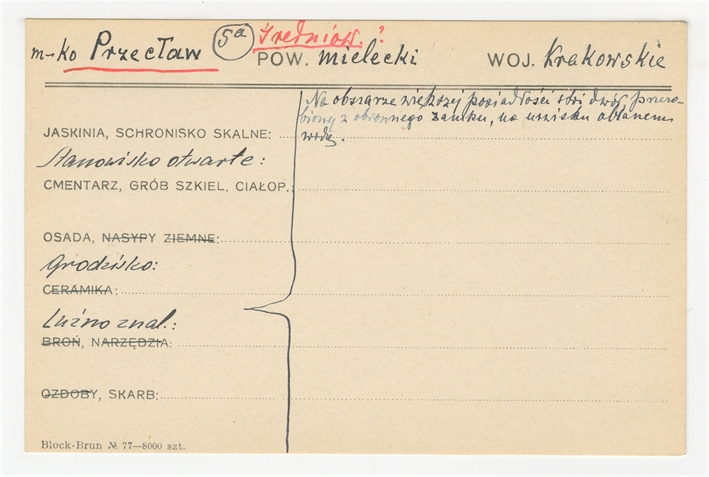 m-ko Przecław 5a Średniow.?
POW. mielecki WOJ. Krakowskie
Na obszarze większej posiadłości stoi dwór, przero-
biony z obronnego zamku, na urwisku oblanem
wodą.
JASKINIA, SCHRONISKO SKALNE:
Stanowisko otwarte:
CMENTARZ, GRÓB SZKIEL. CIAŁOP.:
OSADA, NASYPY ZIEMNE:
Grodzisko:
CERAMIKA:
Luźno znal.:
BROŃ, NARZĘDZIA:
OZDOBY, SKARB:
Block-Brun № 77—8000 szt.